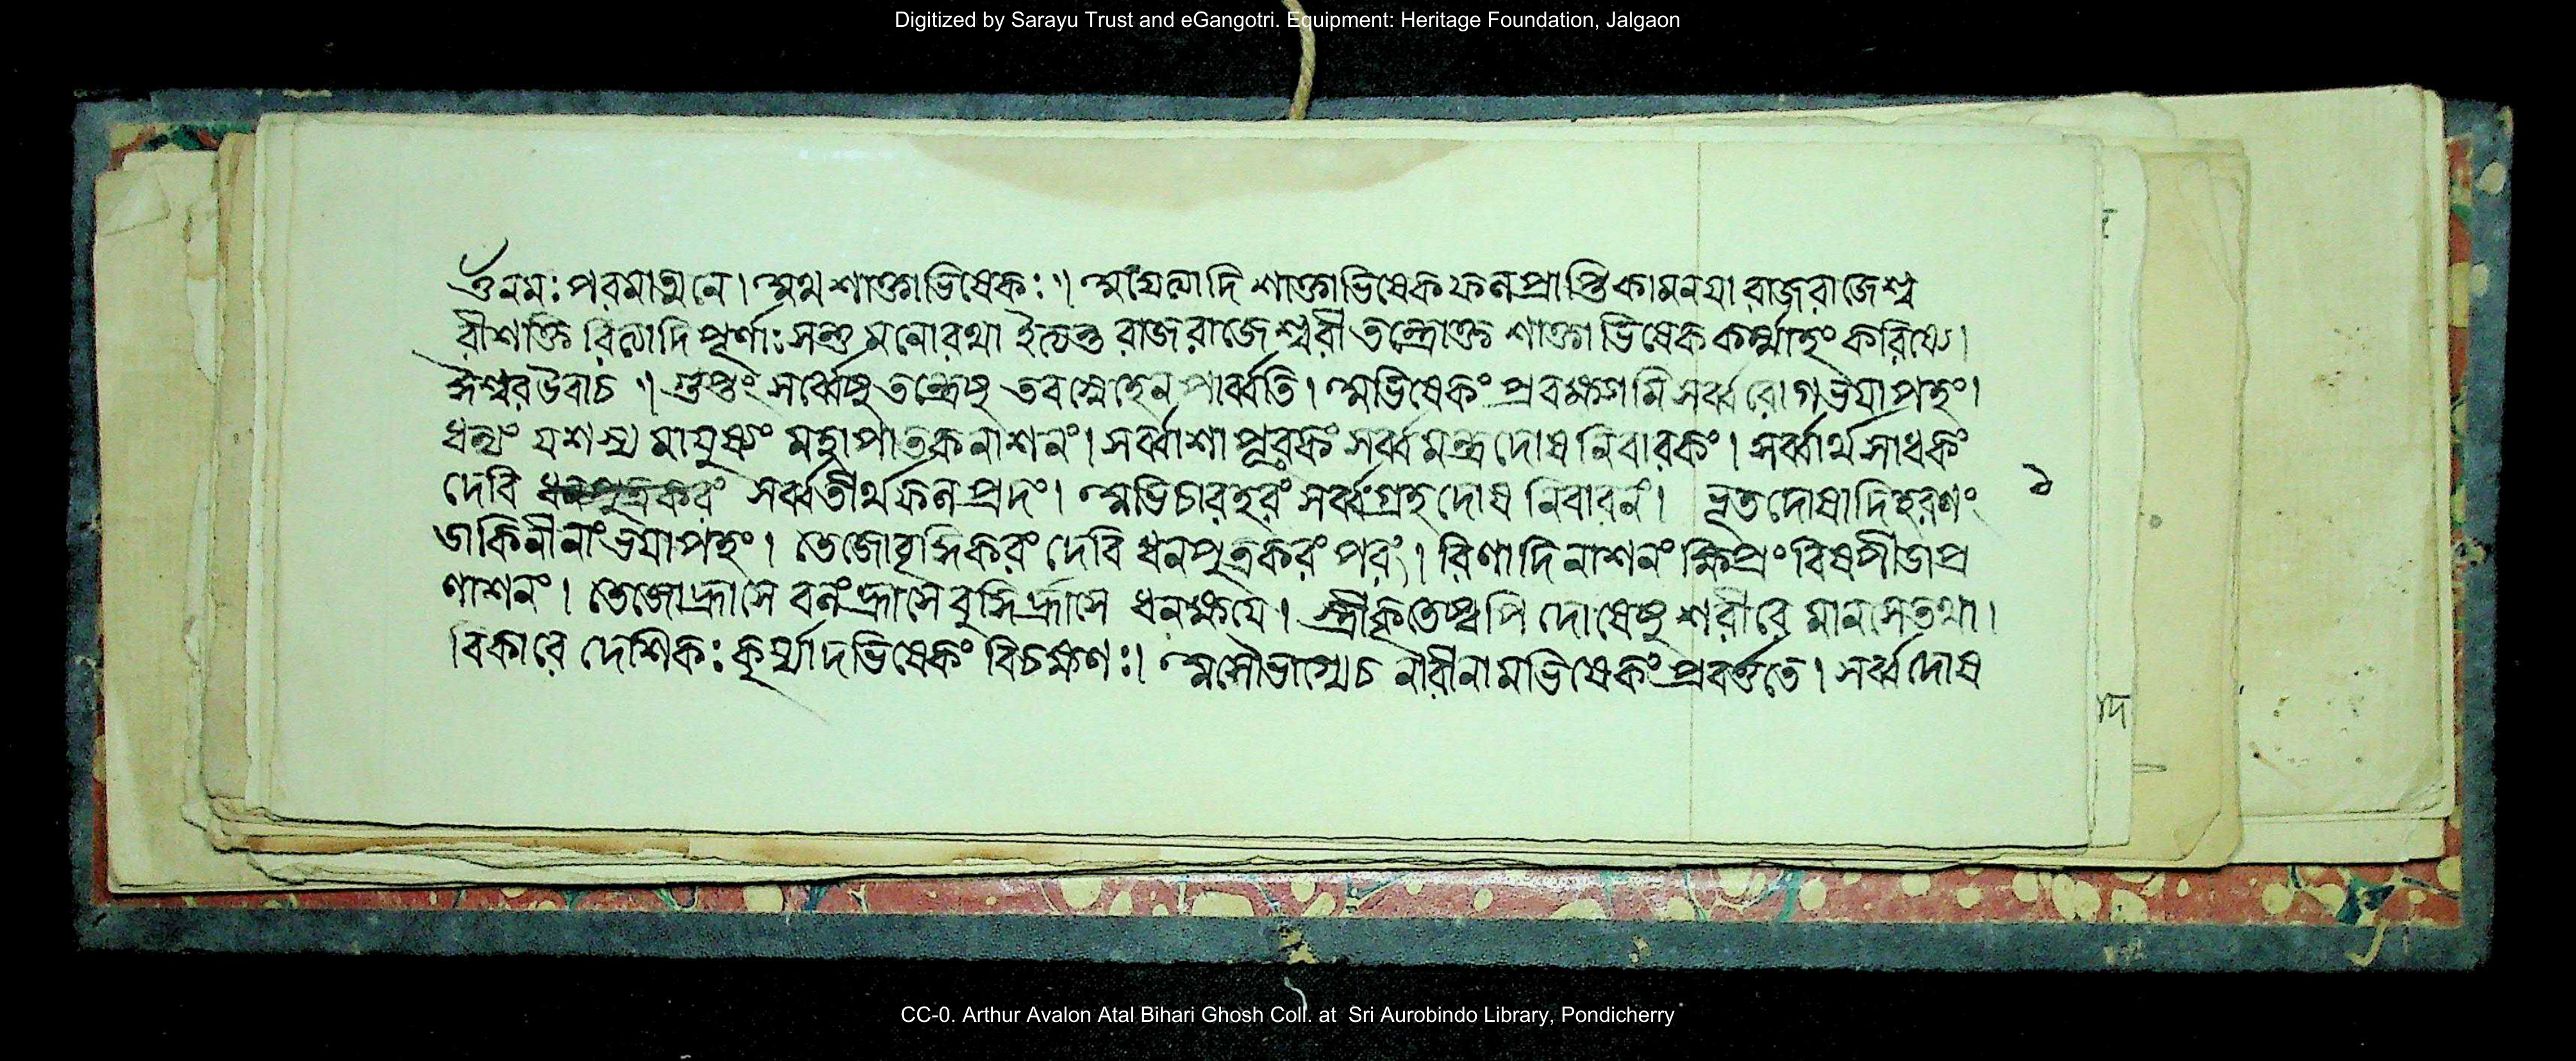 Digitized by Sarayu Trust and eGangotri. Equipment: Heritage Foundation, Jalgaon
ওঁ নমঃ পরমাত্মনে। অথ শাক্তাভিষেকঃ॥ অদ্যেত্যাদি শাক্তাভিষেক ফলপ্রাপ্তি কামনয়া রাজরাজেশ্ব
রীশক্তি রিত্যাদি পূর্ণাঃ সন্তু মনোরথা ইত্যন্ত রাজরাজেশ্বরী তন্ত্রোক্ত শাক্তাভিষেক কর্ম্মাহং করিষ্যে।
ঈশ্বর উবাচ॥ গুপ্তং সর্ব্বেষু তন্ত্রেষু তবস্নেহেন পার্ব্বতি। অভিষেকং প্রবক্ষ্যামি সর্ব্বরোগভয়াপহং।
ধন্যং যশস্য মায়ুষ্যং মহাপাতক নাশনং। সর্ব্বাশা পূরকং সর্ব্বমন্ত্রদোষ নিবারকং। সর্ব্বার্থ সাধকং
দেবি সর্ব্বতীর্থফল প্রদং। অভিচারহরং সর্ব্বগ্রহদোষ নিবারনং। ভূতদোষাদিহরণং ১
ডাকিনীনাং ভয়াপহং। তেজোবৃদ্ধিকরং দেবি ধনপুত্রকরং পরং। রিণাদি নাশনং ক্ষিপ্রং বিষপীডাপ্র
ণাশনং। তেজোহ্রাসে বলহ্রাসে বুদ্ধিহ্রাসে ধনক্ষয়ে। স্ত্রীকৃতেষ্বপি দোষেষু শরীরে মানসে তথা।
বিকারে দেশিকঃ কুর্য্যাদভিষেকং বিচক্ষণঃ। অসৌভাগ্যেচ নারীনামভিষেকং প্রবর্ত্ততে। সর্ব্বদোষ
CC-0. Arthur Avalon Atal Bihari Ghosh Coll. at Sri Aurobindo Library, Pondicherry